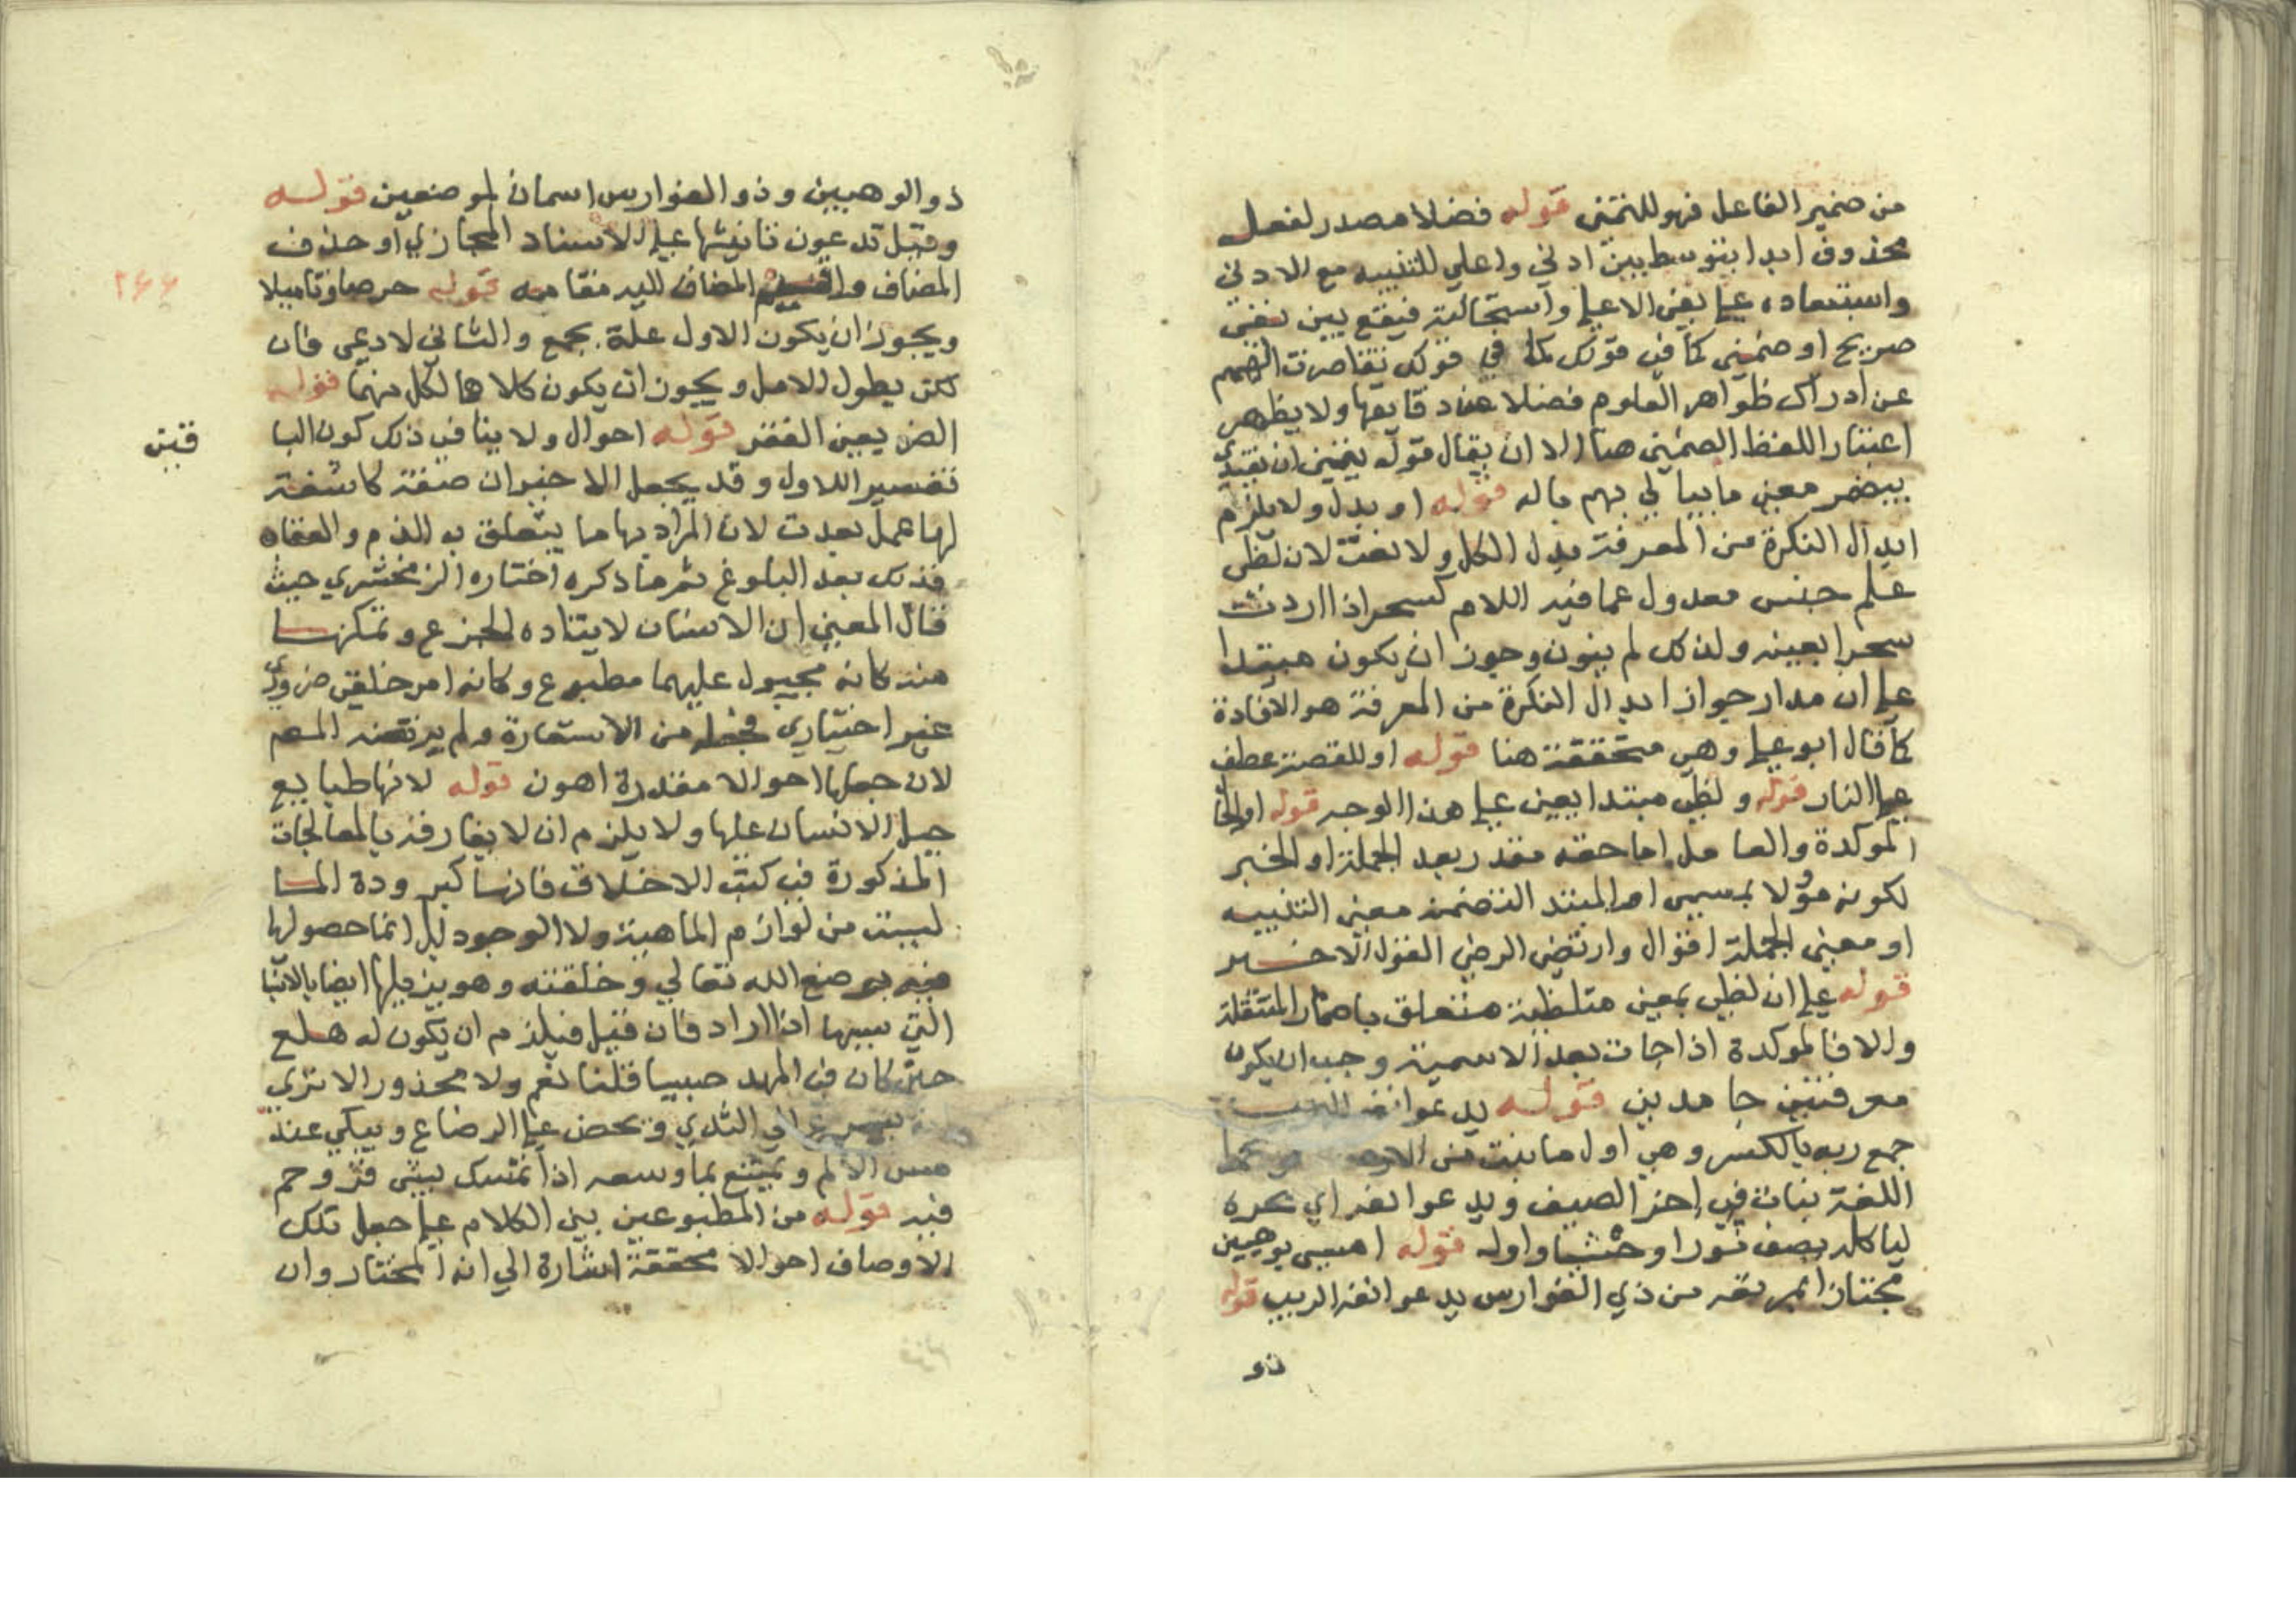 من ضمير الفاعل فهو للتمنى قوله فضلا مصدر لفعل
محذوف ابدا يتوسط بين ادني واعلي للتنبيه مع الادنى
واستبعاده علي نفى الاعلي واستحالته فيقع بين نفى
صريح او ضمنى كما في قولك في قولك تقاصرت الهمم
عن ادراك ظواهر العلوم فضلا عن دقايقها ولا يظهر
اعتبار اللفظ الضمنى هنا الا ان يقال قوله يتمنى ان يفتدي
معنى ما يبالي بهم باله قوله او بدل ولا يلزم
ابدال النكرة من المعرفة بدل الكل ولا نعت لان لظى
علم جنس معدول عما فيه اللام كسحر اذا اردت
سحرا بعينه ولذلك لم ينون وجوز ان يكون مبتدا
علي ان مدار جواز ابدال النكرة من المعرفة هو الافادة
كما قال ابو علي وهي متحققة هنا قوله او للقصة عطف
علي النار قوله ولظى مبتدا يعين علي هذا الوجه قوله او الحا
الموكدة والعامل احقه مقدر بعد الجملة او الخبر
لكونه مؤلا بمسمى او المبتدا لتضمن معنى التنبيه
او معنى الجملة اقوال وارتضى الرضي القول الاخير
قوله علي ان لظى بمعنى متلظية متعلق باحتمال المنتقلة
والا فالموكدة اذا جات بعد الاسمية وجب ان يكون
معرفتين جامدين قوله يدعو انفه الربب
جمع ربه بالكسر وهي اول ما ينبت من الارض
اللغة نبات في اخر الصيف ويدعو انفه اي يجره
لياكله يصف ثورا وحشيا واوله قوله امسى بوهبين
مجتازا لمرتعه من ذي الفوارس يدعو انفه الربب قوله
ذو
ذو الوهبين وذو الفوارس اسمان لموضعين قوله
وقيل تدعون تانيثها علي الاسناد المجازي او حذف
المضاف واقيم المضاف اليه مقامه قوله حرصا وتاميلا
٢٤٤
ويجوز ان يكون الاول علة بجمع والثاني لاوعى فان
لكن بطول الامل ويجوز ان يكون كلاهما لكل منهما قوله
الضر يعين الفقر قوله احوال ولا ينافي ذلك كون البا
قين
تفسير اللاول وقد يجعل الاخيران صفة كاشفة
لها عمل بعدت لان المراد بها ما يتعلق به الذم والعقاه
فذلك بعد البلوغ ثم ما ذكره اختاره الزمخشري حيث
قال المعين ان الانسان لايتناده الجزع وتمكنهـا
منه كانه مجبول عليهما مطبوع وكانه امر خلقى ضروري
غير اختياري فجعله من الاستعارة ولم يرتضه المصم
لان جعلها احوالا مقدرة اهون قوله لانها طبايع
جبل الانسان عليها ولا يلزم ان لا يفارقه بالمعالجات
المذكورة في كتب الاخلاق فانها كبرودة المـا
ليست من لوازم الماهية ولا الوجود بل انما حصولها
فيه بوضع الله تعالي وخلقته وهو يزيلها ايضا بالاسبا
التي سببها اذا اراد فان قيل فيلزم ان يكون له هلع
حين كان في المهد صبيا قلنا نعم ولا محذور الا تري
انه يسرع الي الثدي ويحض علي الرضاع ويبكي عند
مس الالم ويمتنع بما وسعه اذا تمسك بشى فزوحم
فيه قوله من المطبوعين بنى الكلام علي جعل تلك
الاوصاف احوالا محققة اشارة الي انه المختار وان